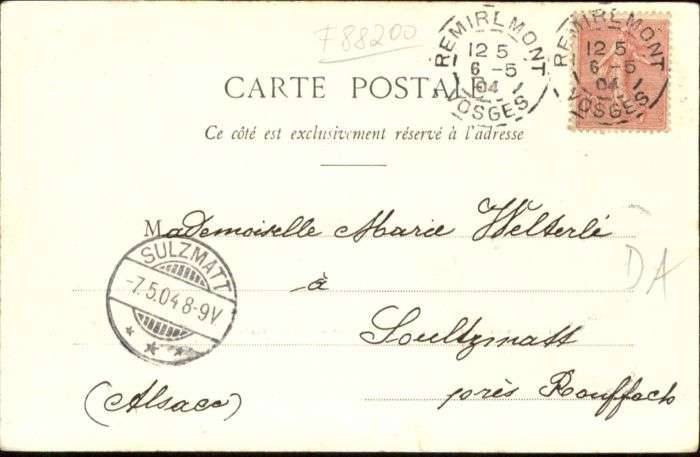 F88200
REMIREMONT
12 5
6 -5
04
VOSGES
REMIREMONT
12 5
6 -5
04
VOSGES
CARTE POSTALE
Ce côté est exclusivement réservé à l'adresse
Mademoiselle Marie Welterlé
SULZMATT
-7.5.04 8-9V.
à
DA
Soultzmatt
(Alsace)
près Rouffach